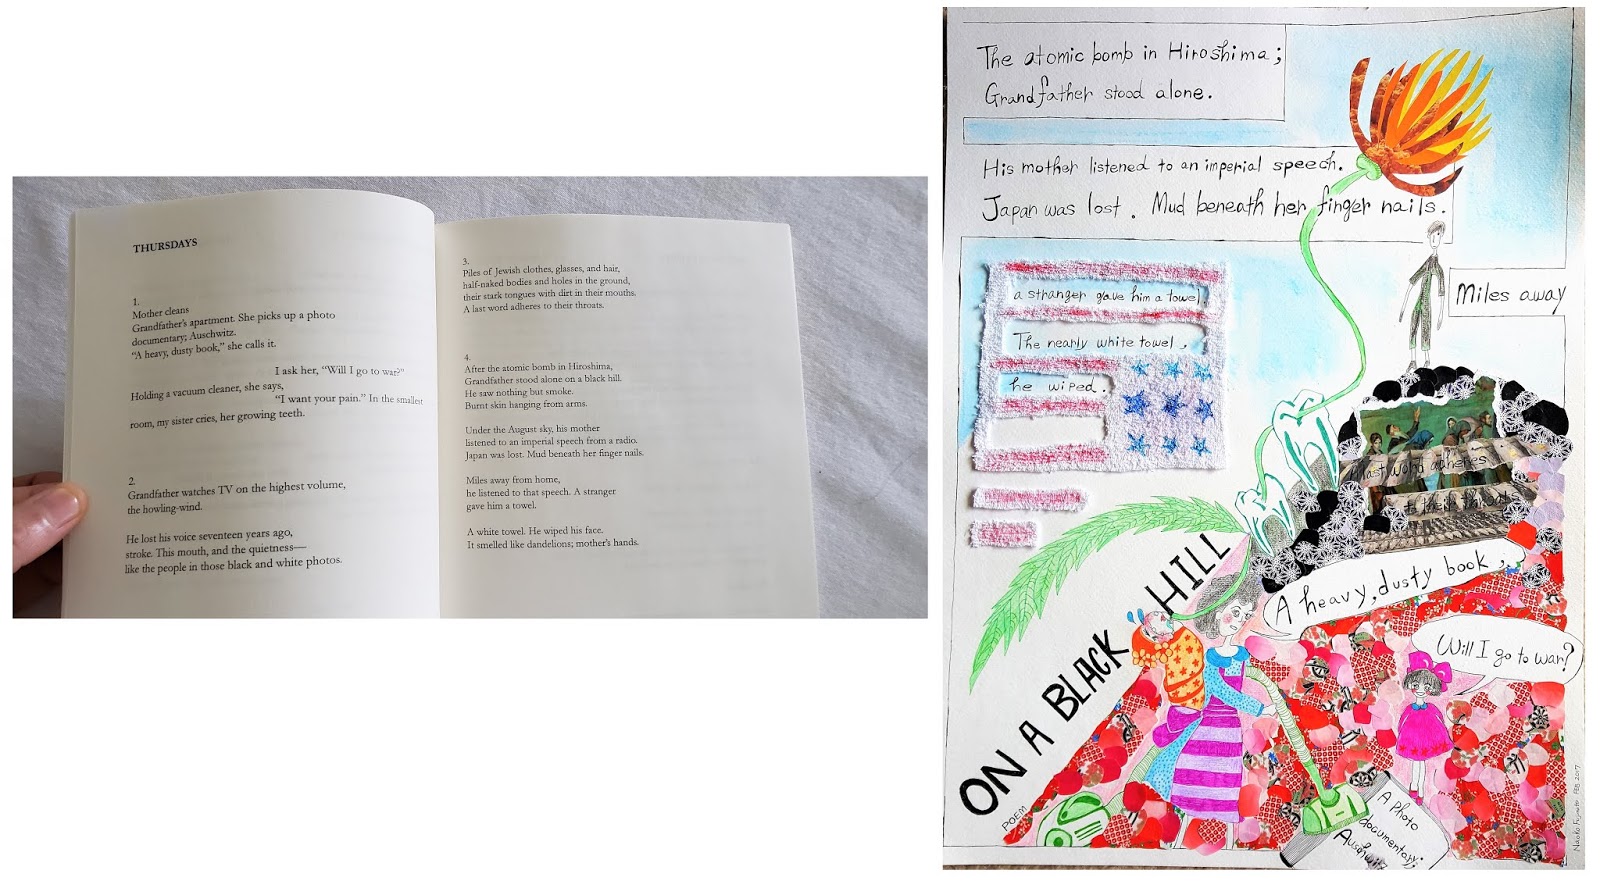 THURSDAYS
1.
Mother cleans
Grandfather's apartment. She picks up a photo
documentary; Auschwitz.
“A heavy, dusty book,” she calls it.
I ask her, “Will I go to war?”
Holding a vacuum cleaner, she says,
“I want your pain.” In the smallest
room, my sister cries, her growing teeth.
2.
Grandfather watches TV on the highest volume,
the howling-wind.
He lost his voice seventeen years ago,
stroke. This mouth, and the quietness—
like the people in those black and white photos.
3.
Piles of Jewish clothes, glasses, and hair,
half-naked bodies and holes in the ground,
their stark tongues with dirt in their mouths.
A last word adheres to their throats.
4.
After the atomic bomb in Hiroshima,
Grandfather stood alone on a black hill.
He saw nothing but smoke.
Burnt skin hanging from arms.
Under the August sky, his mother
listened to an imperial speech from a radio.
Japan was lost. Mud beneath her finger nails.
Miles away from home,
he listened to that speech. A stranger
gave him a towel.
A white towel. He wiped his face.
It smelled like dandelions; mother's hands.
The atomic bomb in Hiroshima;
Grandfather stood alone.
His mother listened to an imperial speech.
Japan was lost. Mud beneath her finger nails.
Miles away
a stranger gave him a towel
The nearly white towel.
he wiped.
a last word adheres
to their throats
ON A BLACK HILL
POEM
A heavy, dusty book;
Will I go to war?
A Photo
documentary;
Auschwitz
Naoko Fujimoto FEB 2017